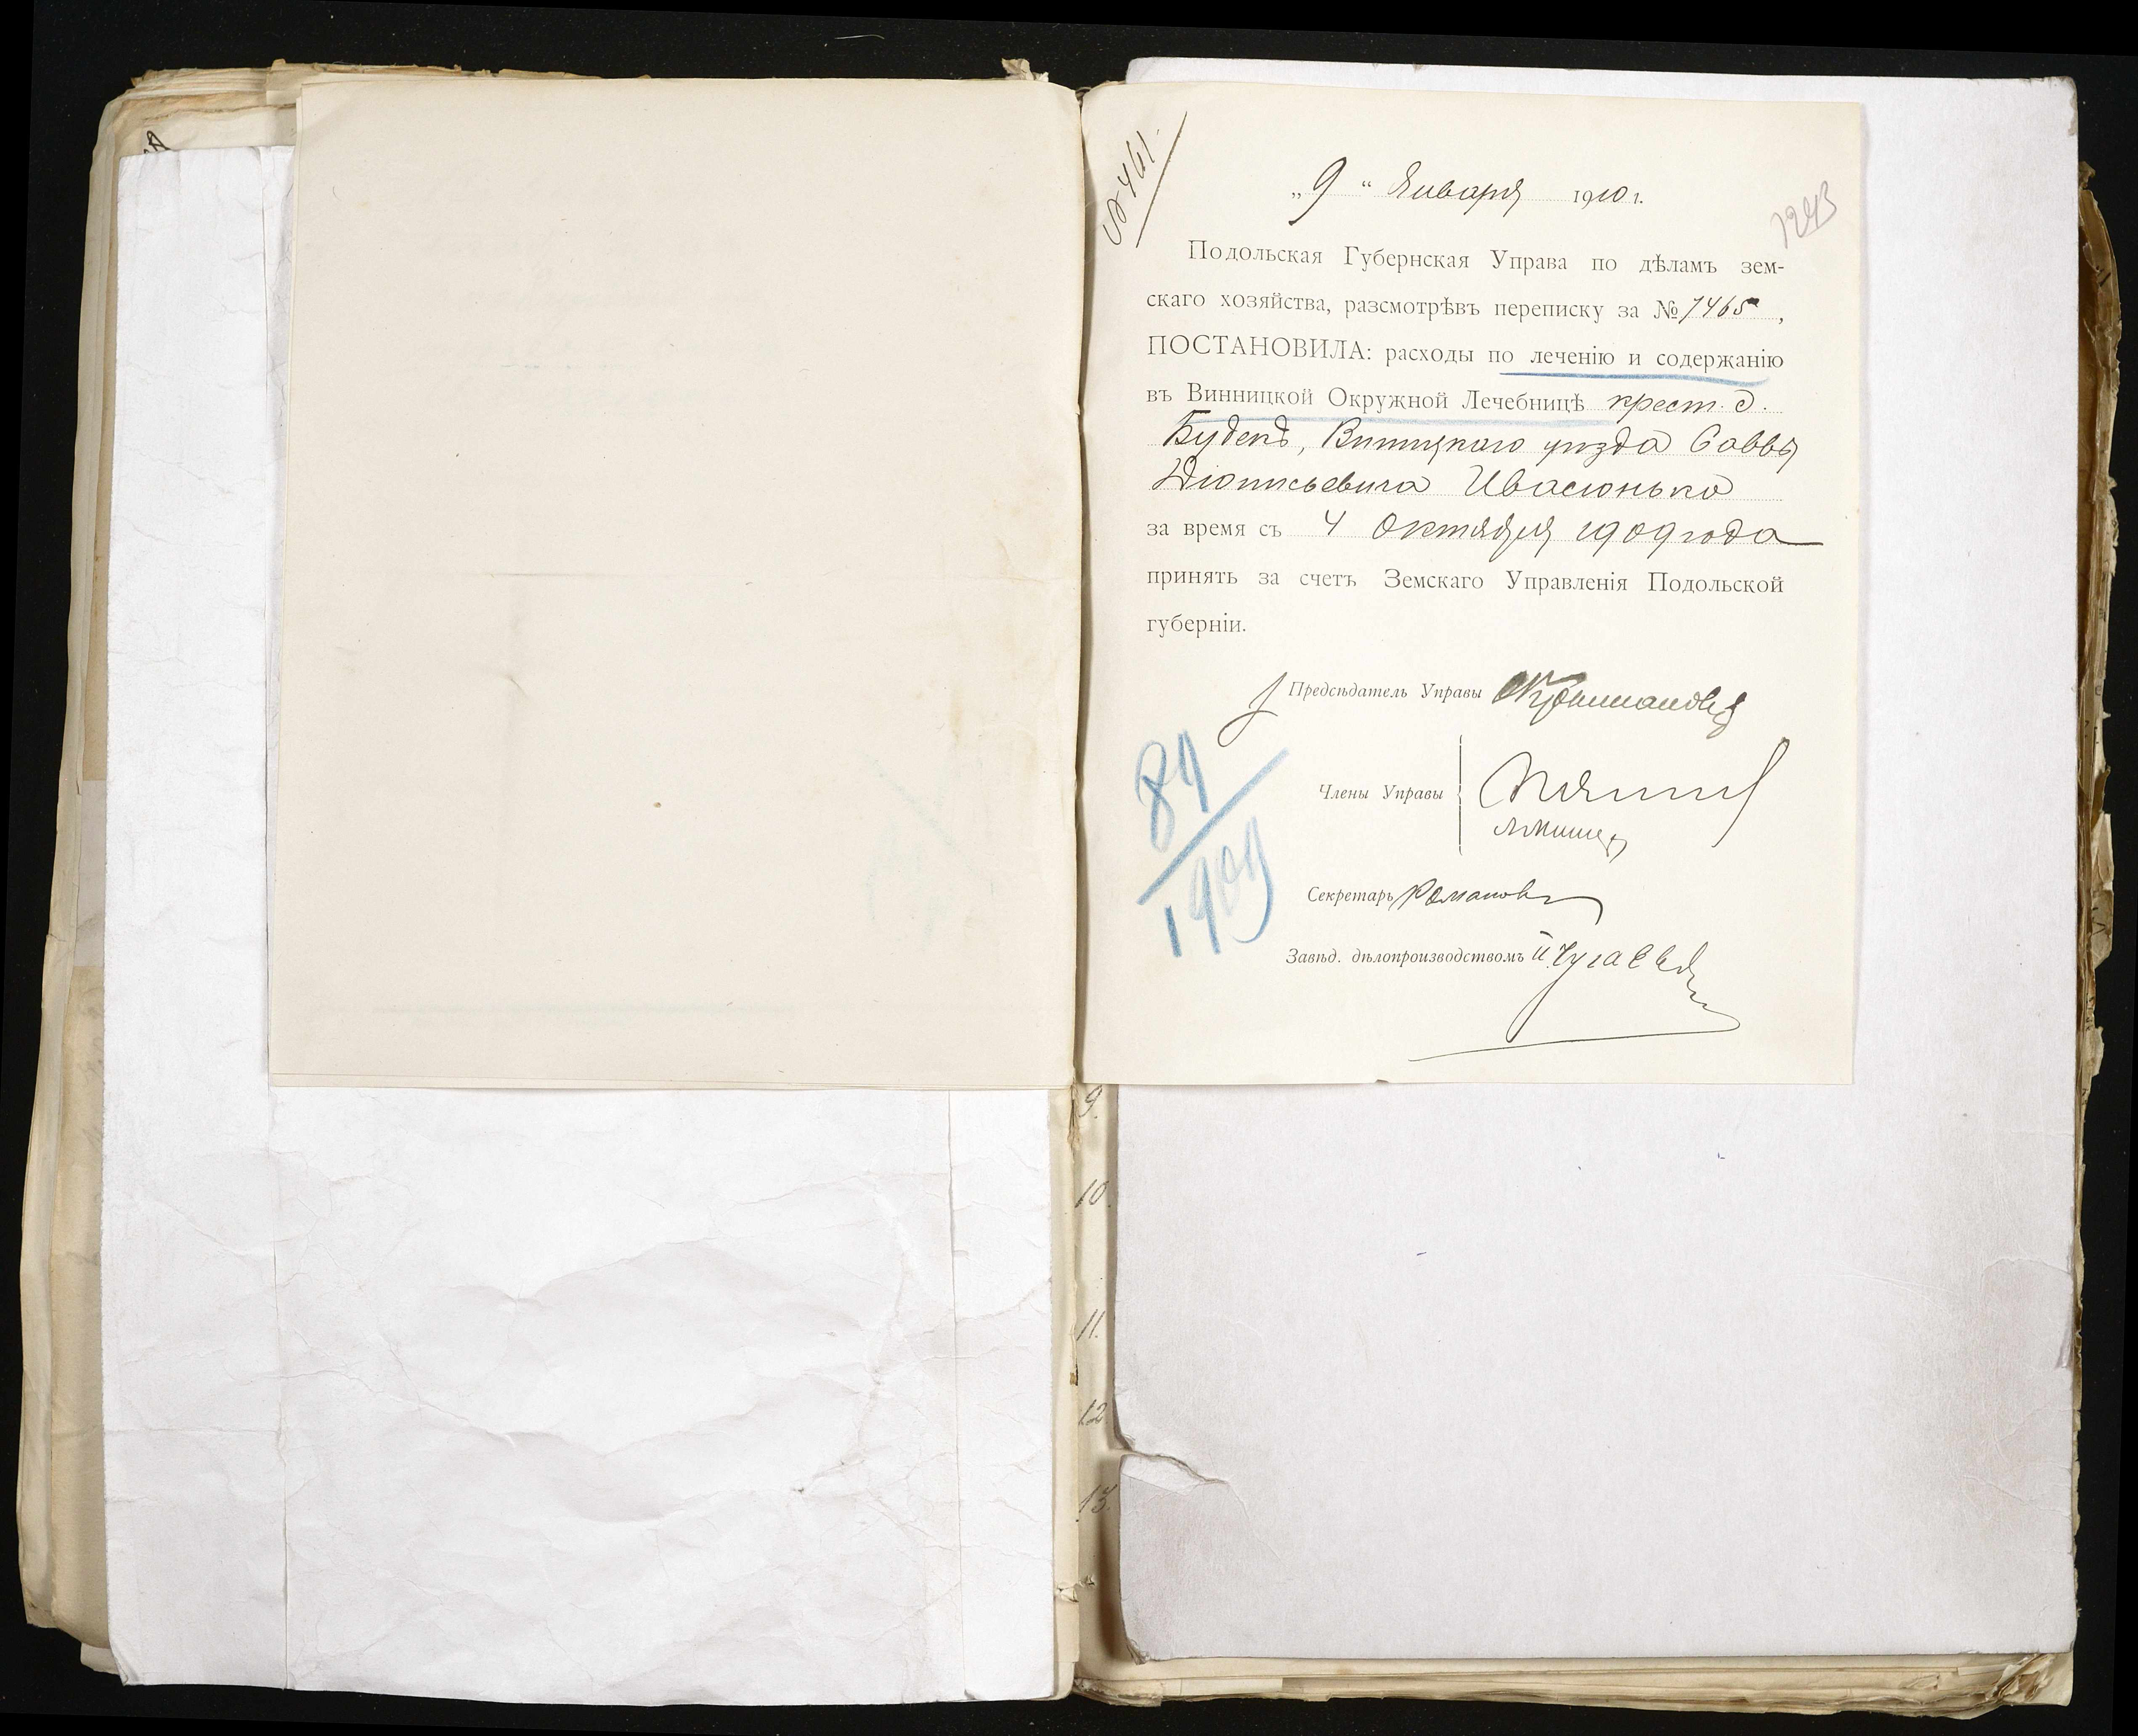 № 461.
„9“ Января 1910 г.
1243
Подольская Губернская Управа по дѣламъ зем-
скаго хозяйства, разсмотрѣвъ переписку за № 7465,
ПОСТАНОВИЛА: расходы по леченію и содержанію
въ Винницкой Окружной Лечебницѣ крест. д.
Будекъ, Винницкаго уѣзда Саввы
Діонисьевича Ивасюнько
за время съ 4 Октября 1909 года
принять за счетъ Земскаго Управленія Подольской
губерніи.
Предсѣдатель Управы
Члены Управы
Секретарь Романов
Завѣд. дѣлопроизводствомъ
84
1909
9.
10.
11.
12
13.